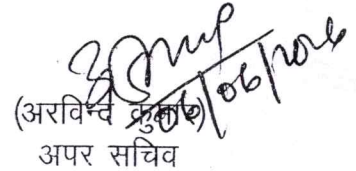 06/06/2026
(अरविन्द कुमार)
अपर सचिव